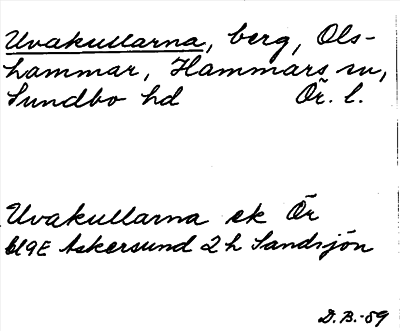 Uvakullarna, berg, Ols-
hammar, Hammars sn,
Sundbo hd Ör. l.
Uvakullarna ek Ör
Askersund 2 h Sandsjön
D.B.-59